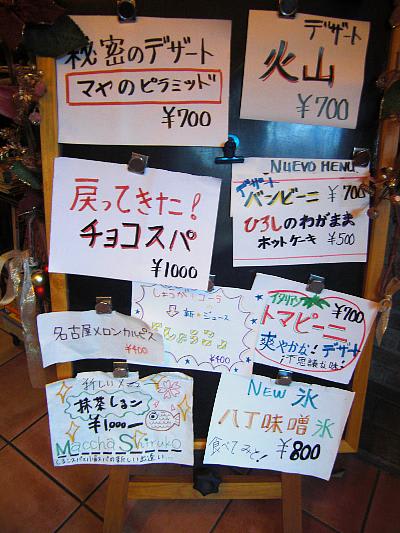 秘密のデザート
マヤのピラミッド
¥700
デザート
火山
¥700
戻ってきた!
チョコスパ
¥1000
NUEVO MENU
デザート
バンビーニ ¥700
ひろしのわがまま
ホットケーキ ¥500
名古屋メロンカルピス
¥400
しょうが・コーラ
新★ジュース
¥400
イタリアン
¥700
トマピーニ
爽やかな!デザート
不思議な味!
新しいメニュー
抹茶しるこ
¥1000-
Maccha Shiruko
NEW 氷
八丁味噌氷
食べてみと!
¥800